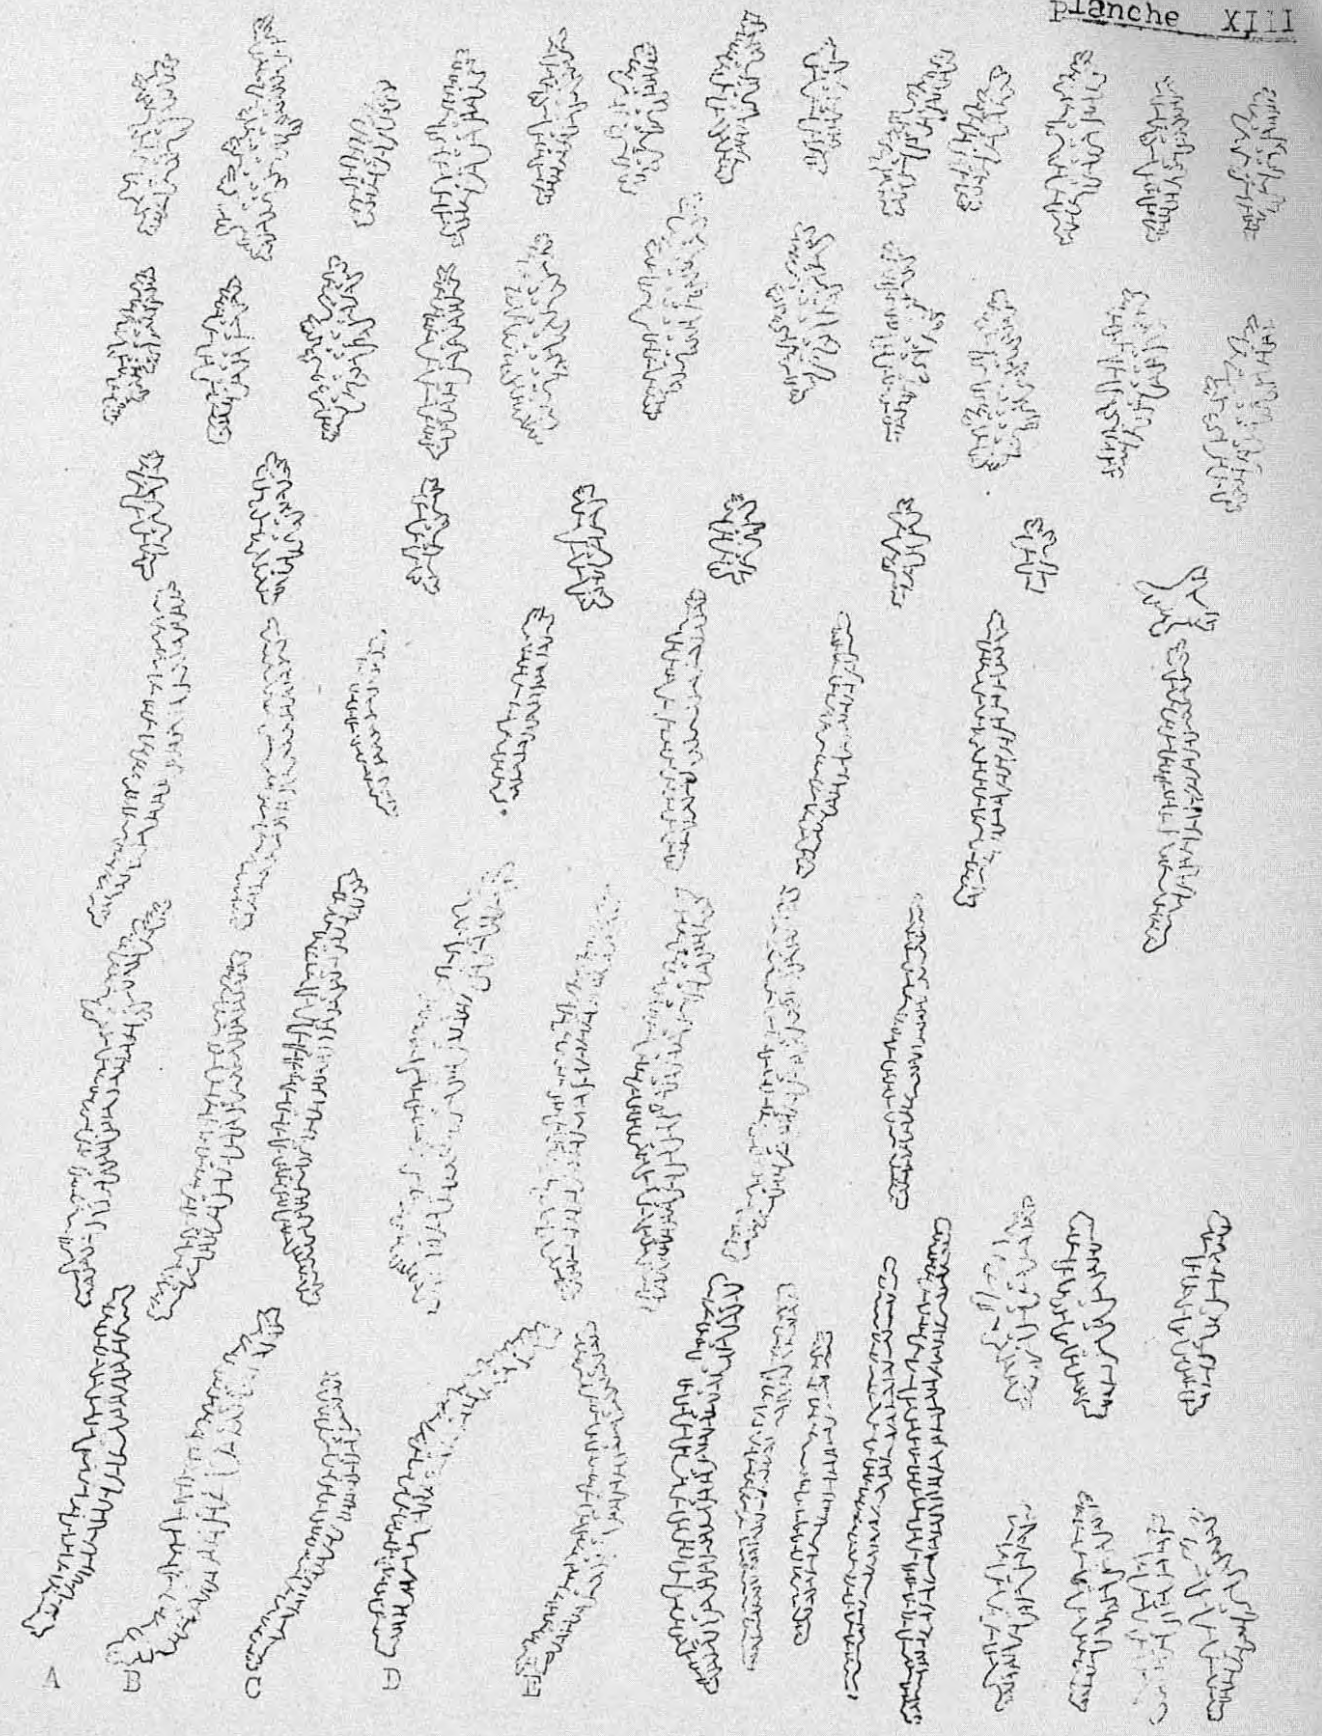 planche XIII
A B C D E